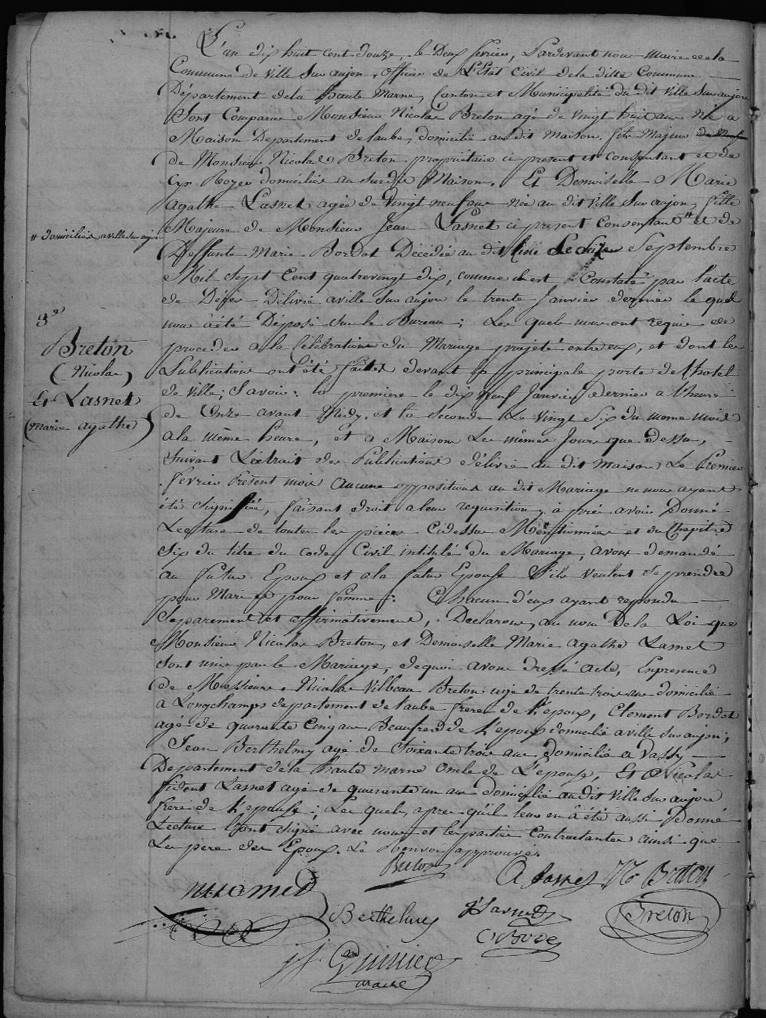 L'an dix huit cent douze, le Deux fevrier, Pardevant nous Maire de la
Commune de Ville Sur aujon, officier de L'Etat Civil de la ditte Commune
Département de la haute Marne, Canton et Municipalité du dit Ville Sur aujon
Sont Comparus Monsieur Nicolas Breton agé de vingt huit ans Né a
Maison Departement de laube, domicilié au dit maison, fils Majeur
de Monsieur Nicolas Breton proprietaire ci present et consentant et de
domiciliés au susdit Maison, Et Demoiselle Marie
Agathe Lasnet agée de vingt neuf ans née au dit Ville Sur aujon, fille
Majeure de Monsieur Jean Lasnet ci present Consentant # et de
# domiciliés a ville sur aujon
Deffunte Marie Bordot Décédée au dit lieu Le Septembre
Mil Sept Cent quatrevingt dix, comme il est Constaté par l'acte
de Décés Délivré a ville Sur aujon le trente Janvier dernier le quel
nous a été Déposé Sur le Bureau; Les quels nous ont requis de
3e
Breton
(Nicolas)
Et Lasnet
(marie agathe)
proceder a la Célébration du Mariage projeté entre eux, et dont les
Publications ont été faites devant la principale porte de l'hotel
de ville; Savoir: la premiere le dix neuf Janvier dernier a l'heure
de Onze avant Midy, et la Seconde Le vingt Six du meme mois
a la même heure, et a Maison Les mêmes Jours que dessus,
Suivant L'extrait de Publications délivré au dit maison Le Premier
fevrier Present mois aucune oppositions au dit Mariage ne nous ayant
été Signifiée, faisant droit a leur requisition, après avoir Donné
Lecture de toutes les pièces Cidessus Mentionnées et du Chapitre
Six du titre du code Civil intitulé du Mariage, avons demandé
au futur Epoux et a la future Epouse S'ils veulent Se prendre
pour Mari et pour femme: Chacun d'eux ayant repondu
Separement et affirmativement, Declarons au nom de la Loi que
Monsieur Nicolas Breton, et Demoiselle Marie Agathe Lasnet
Sont unis par le Mariage, de quoi avons dressé Acte, En presence
de Messieurs Nicolas Breton agé de trente trois ans domicilié
a Longchamps departement de laube frere de l'epoux, Clement Bordot
agé de quarante Cinq ans Beaufrere de l'epoux domicilié a ville Sur aujon;
Jean Berthelmy agé de Soixante trois ans Domicilié a Vassy
Departement de la haute marne Oncle de L'epouse, Et Nicolas
Lasnet agé de quarante un ans domicilié au dit Ville Sur aujon
frere de l'epouse; Les quels, apres qu'il leur en a été aussi Donné
Lecture L'ont Signé avec nous et les parties Contractantes ainsi que
Les pere des Epoux. Le Renvoi approuvé.
Breton
A Lasnet N Breton
Berthelmy J Lasnet Breton
maire